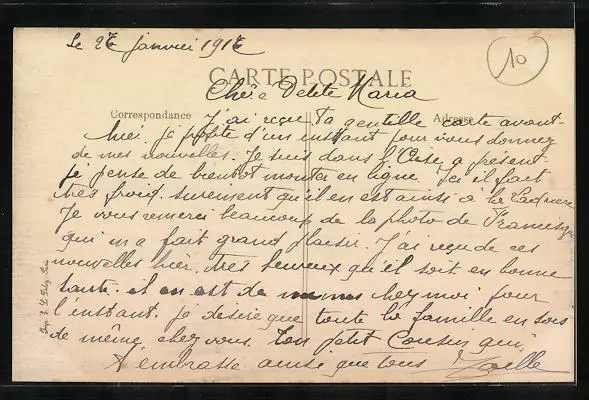 Le 26 janvier 1917
10
CARTE POSTALE
Chère Petite Maria
Correspondance
Adresse
J'ai reçue ta gentille carte avant-
hier. je profite d'un instant pour vous donnez
de mes nouvelles. Je suis dans l'Oise a présent
je pense de bientot monter en ligne. Ici il fait
très froid. surement qu'il en est ainsi à la
Je vous remerci beaucoup de la photo de Francisque
qui m'a fait grand plaisir. J'ai reçu de ces
nouvelles hier. très heureux qu'il soit en bonne
santé. il en est de même chez moi pour
l'instant. je desire que toute la famille en sois
de même chez vous. Ton petit Cousin qui
t'embrasse ainsi que tous